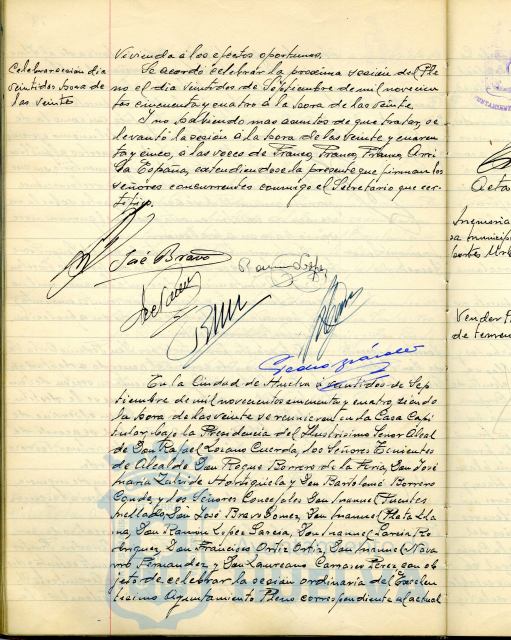 Vivienda á los efectos oportunos.
Celebrar sesión dia
veintidos hora de
las veinte
Se acordó celebrar la proxima sesión del Ple-
no el dia veintidos de Septiembre de mil novecien-
tos cincuenta y cuatro á la hora de las veinte.
Y no habiendo mas asuntos de que tratar, se
levantó la sesión á la hora de las veinte y cuaren-
ta y cinco, á las voces de Franco, Franco, Franco, Arri-
ba España, extendiendose la presente que firman los
señores concurrentes conmigo el Secretario que cer-
tifico.
José Bravo
Ramon Lopez
En la Ciudad de Huelva á veintidos de Sep-
tiembre de mil novecientos cincuenta y cuatro, siendo
la hora de las veinte se reunieron en la Casa Capi-
tular, bajo la Presidencia del Ilustrisimo Señor Alcal-
de Don Rafael Lozano Cuerda, los Señores Tenientes
de Alcalde Don Roque Borrero de la Feria, Don José
Maria Zalvide Hortiguela y Don Bartolomé Borrero
Conde, y los Señores Concejales Don Manuel Fuentes
Mellado, Don José Bravo Gomez, Don Manuel Plata Lla-
na, Don Ramon Lopez Garcia, Don Manuel Garcia Ro-
driguez, Don Francisco Ortiz Ortiz, Don Manuel Nava-
rro Fernandez, y Don Laureano Carrasco Perez con ob-
jeto de celebrar la sesión ordinaria del Excelen-
tisimo Ayuntamiento Pleno correspondiente al actual
Acta
Vender
de terren